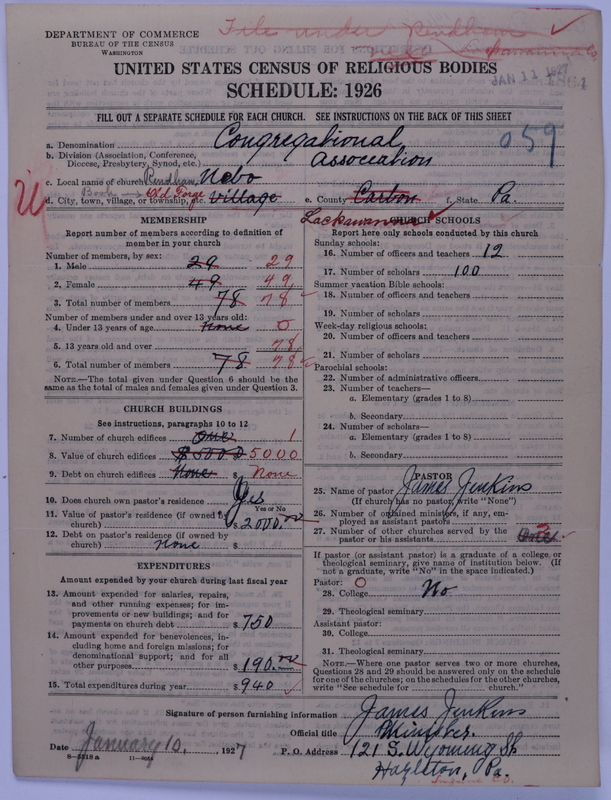 File under Rendham
Lackawanna Co
DEPARTMENT OF COMMERCE
BUREAU OF THE CENSUS
WASHINGTON
JAN 11 1927
UNITED STATES CENSUS OF RELIGIOUS BODIES
SCHEDULE: 1926
FILL OUT A SEPARATE SCHEDULE FOR EACH CHURCH. SEE INSTRUCTIONS ON THE BACK OF THIS SHEET
059
a. Denomination Congregational
b. Division (Association, Conference, Diocese, Presbytery, Synod, etc.) association
c. Local name of church Rendham Nebo
Old Forge
d. City, town, village, or township, etc. Village e. County Carbon f. State Pa.
Lackawanna
MEMBERSHIP
Report number of members according to definition of member in your church
Number of members, by sex:
1. Male 29 29
2. Female 49 49
3. Total number of members 78 78
Number of members under and over 13 years old:
4. Under 13 years of age None 0
5. 13 years old and over 78
6. Total number of members 78 78
NOTE.—The total given under Question 6 should be the same as the total of males and females given under Question 3.
CHURCH BUILDINGS
See instructions, paragraphs 10 to 12
7. Number of church edifices One 1
8. Value of church edifices $5000 5000
9. Debt on church edifices None $ None
10. Does church own pastor's residence Yes
Yes or No
11. Value of pastor's residence (if owned by church) $2000.00
12. Debt on pastor's residence (if owned by church) None $
EXPENDITURES
Amount expended by your church during last fiscal year
13. Amount expended for salaries, repairs, and other running expenses; for improvements or new buildings; and for payments on church debt $750
14. Amount expended for benevolences, including home and foreign missions; for denominational support; and for all other purposes $190.00
15. Total expenditures during year $940
CHURCH SCHOOLS
Report here only schools conducted by this church
Sunday schools:
16. Number of officers and teachers 12
17. Number of scholars 100
Summer vacation Bible schools:
18. Number of officers and teachers
19. Number of scholars
Week-day religious schools:
20. Number of officers and teachers
21. Number of scholars
Parochial schools:
22. Number of administrative officers
23. Number of teachers—
a. Elementary (grades 1 to 8)
b. Secondary
24. Number of scholars—
a. Elementary (grades 1 to 8)
b. Secondary
PASTOR
25. Name of pastor James Jenkins
(If church has no pastor, write "None")
26. Number of ordained ministers, if any, employed as assistant pastors
27. Number of other churches served by the pastor or his assistants One
If pastor (or assistant pastor) is a graduate of a college or theological seminary, give name of institution below. (If not a graduate, write "No" in the space indicated.)
Pastor: 0
28. College No
29. Theological seminary
Assistant pastor:
30. College
31. Theological seminary
NOTE.—Where one pastor serves two or more churches, Questions 28 and 29 should be answered only on the schedule for one of the churches; on the schedules for the other churches, write "See schedule for church."
Signature of person furnishing information James Jenkins
Official title Minister.
Date January 10, 1927 P. O. Address 121 S. Wyoming St
Hazleton, Pa.
8-5518a 11-9051
Luzerne Co.